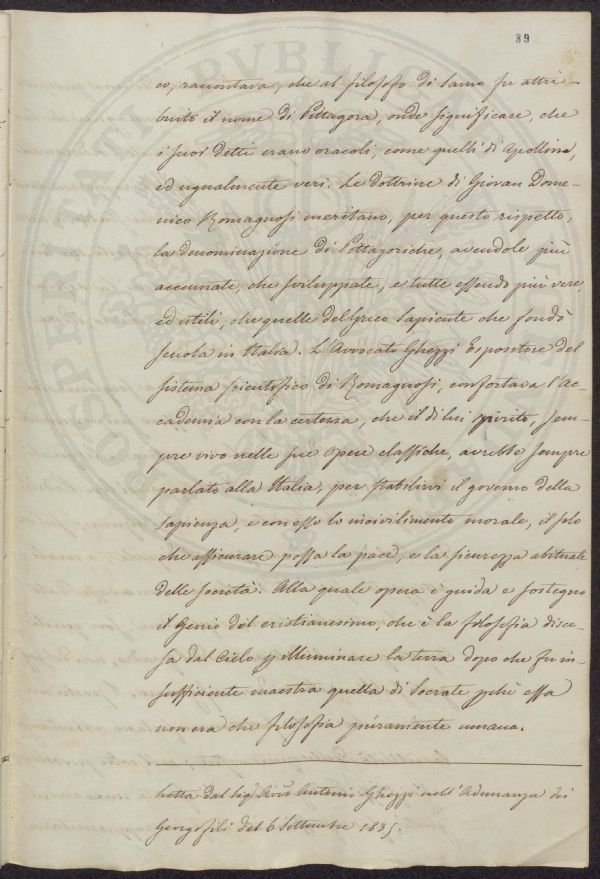 39
co, raccontava, che al filosofo di Samo fu attri-
buito il nome di Pittagora, onde significare, che
i suoi detti erano oracoli, come quelli di Apolline,
ed ugualmente veri. Le dottrine di Giovan Dome-
nico Romagnosi meritano, per questo rispetto,
la denominazione di Pittagoriche, avendole più
accennate, che sviluppate, e tutte essendo più vere,
ed utili, che quelle del Greco Sapiente che fondò
scuola in Italia. L'Avvocato Ghezzi Espositore del
sistema scientifico di Romagnosi, confortava l'Ac-
cademia con la certezza, che il di lui spirito, sem-
pre vivo nelle sue opere classiche, avrebbe sempre
parlato alla Italia, per stabilirvi il governo della
sapienza, e con esso lo incivilimento morale, il solo
che assicurare possa la pace, e la sicurezza abituale
delle società. Alla quale opera è guida e sostegno
il Genio del cristianesimo, che è la filosofia disce-
sa dal Cielo p illuminare la terra dopo che fu in-
sufficiente maestra quella di Socrate pchè essa
non era che filosofia puramente umana.
Letta dal Sigr Avvo Antonio Ghezzi nell'Adunanza dei
Georgofili del 6 Settembre 1835.
PROSPERITATI PVBLICAE